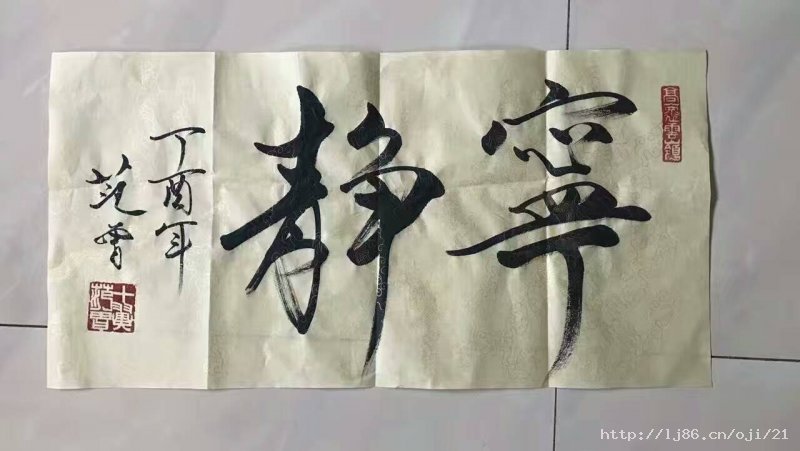 寧靜
丁酉年
范曾
十翼
范曾
http://lj86.cn/oji/21